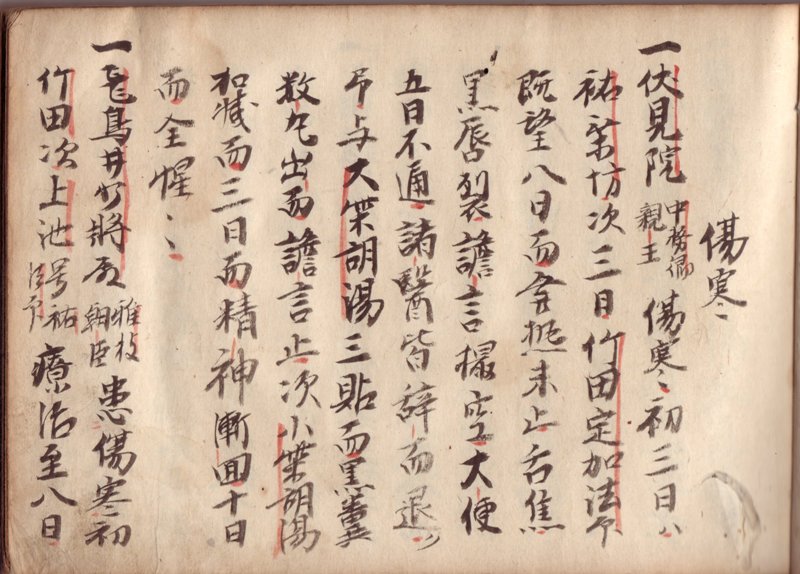 傷寒
一伏見院中務卿親王傷寒初三日ハ
祐乗坊次三日竹田定加法印
既望八日而余熱未止舌焦
黒唇裂譫言撮空大便
五日不通諸醫皆辞而退ク
予与大柴胡湯三貼而黒糞
数丸出而譫言止次小柴胡湯
加减而三日而精神漸回十日
而全惺
一飛鳥井少將殿雅枝朝臣患傷寒初
竹田次上池号祐法印療治至八日